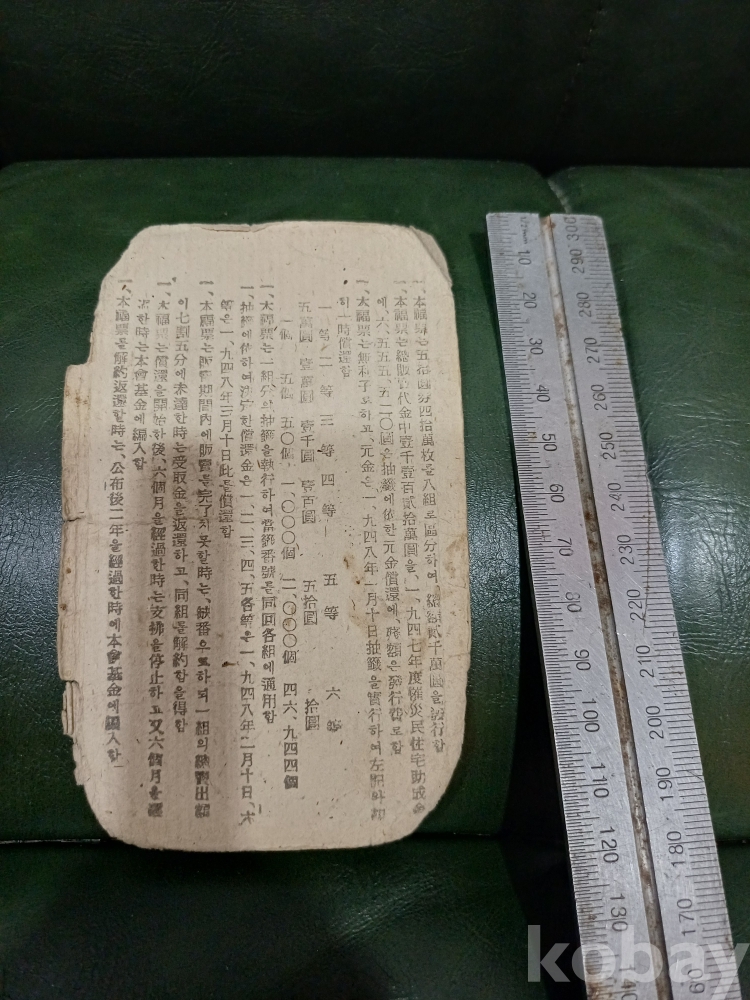 一、本福票는五拾圓券四拾萬枚를八組로區分하여、總額貳千萬圓을發行함
一、本福票는總販賣代金中壹千壹百貳拾萬圓을、一、九四七年度罹災民住宅助成金
에、六、五五五、五二〇圓을抽籤에依한元金償還에、殘額은發行費로함
一、本福票는無利子로하고、元金은一、九四八年一月十日抽籤을實行하여左記와如
히一時償還함
一等 二等 三等 四等 五等 六等
五萬圓 壹萬圓 壹千圓 壹百圓 五拾圓 拾圓
一個 五個 五〇個 一、〇〇〇個 二、〇〇〇個 四六、九四四個
一、本福票는一組分의抽籤을執行하여當籤番號를同回各組에通用함
一、抽籤에依하여決定한償還金은一、二、三、四、五各等은一、九四八年二月十日、六
等은一、九四八年三月十日此를償還함
一、本福票는販賣期間內에販賣를完了치못할時는、缺番으로하되一組의總賣出額
이七割五分에未達한時는受取金을返還하고、同組를解約함을得함
一、本福票는償還을開始한後、六個月을經過한時는支拂을停止하고又六個月을經
過한時는本會基金에編入함
一、本福票를解約返還할時는、公布後二年을經過한時에本會基金에編入함
10 20 30 40 50 60 70 80 90 100 110 120 130
300 290 280 270 260 250 240 230 220 210 200 190 180 170
kobay